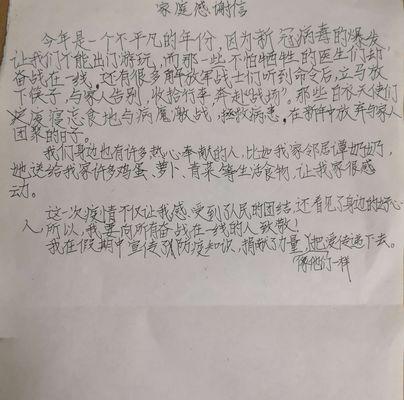 家庭感谢信
今年是一个不平凡的年份，因为新冠病毒的爆发
让我们不能出门游玩，而那一些不怕牺牲的医生们却
奋战在一线，还有很多解放军战士们听到命令后，立马放
下筷子，与家人告别，收拾行李，奔赴“战场”。那些白衣天使们
废寝忘食地与病魔激战，拯救病患，在新年中放弃与家人
团聚的日子。
我们身边也有许多热心奉献的人，比如我家邻居谭奶奶，
她送给我家许多鸡蛋、萝卜、青菜等生活食物，让我家很感
动。
这一次疫情不仅让我感受到了人民的团结，还看见了身边的热心
人，所以，我要向所有奋战在一线的人致敬！
我在假期中宣传了防疫知识，捐献了力量，把爱传递下去。
像他们一样